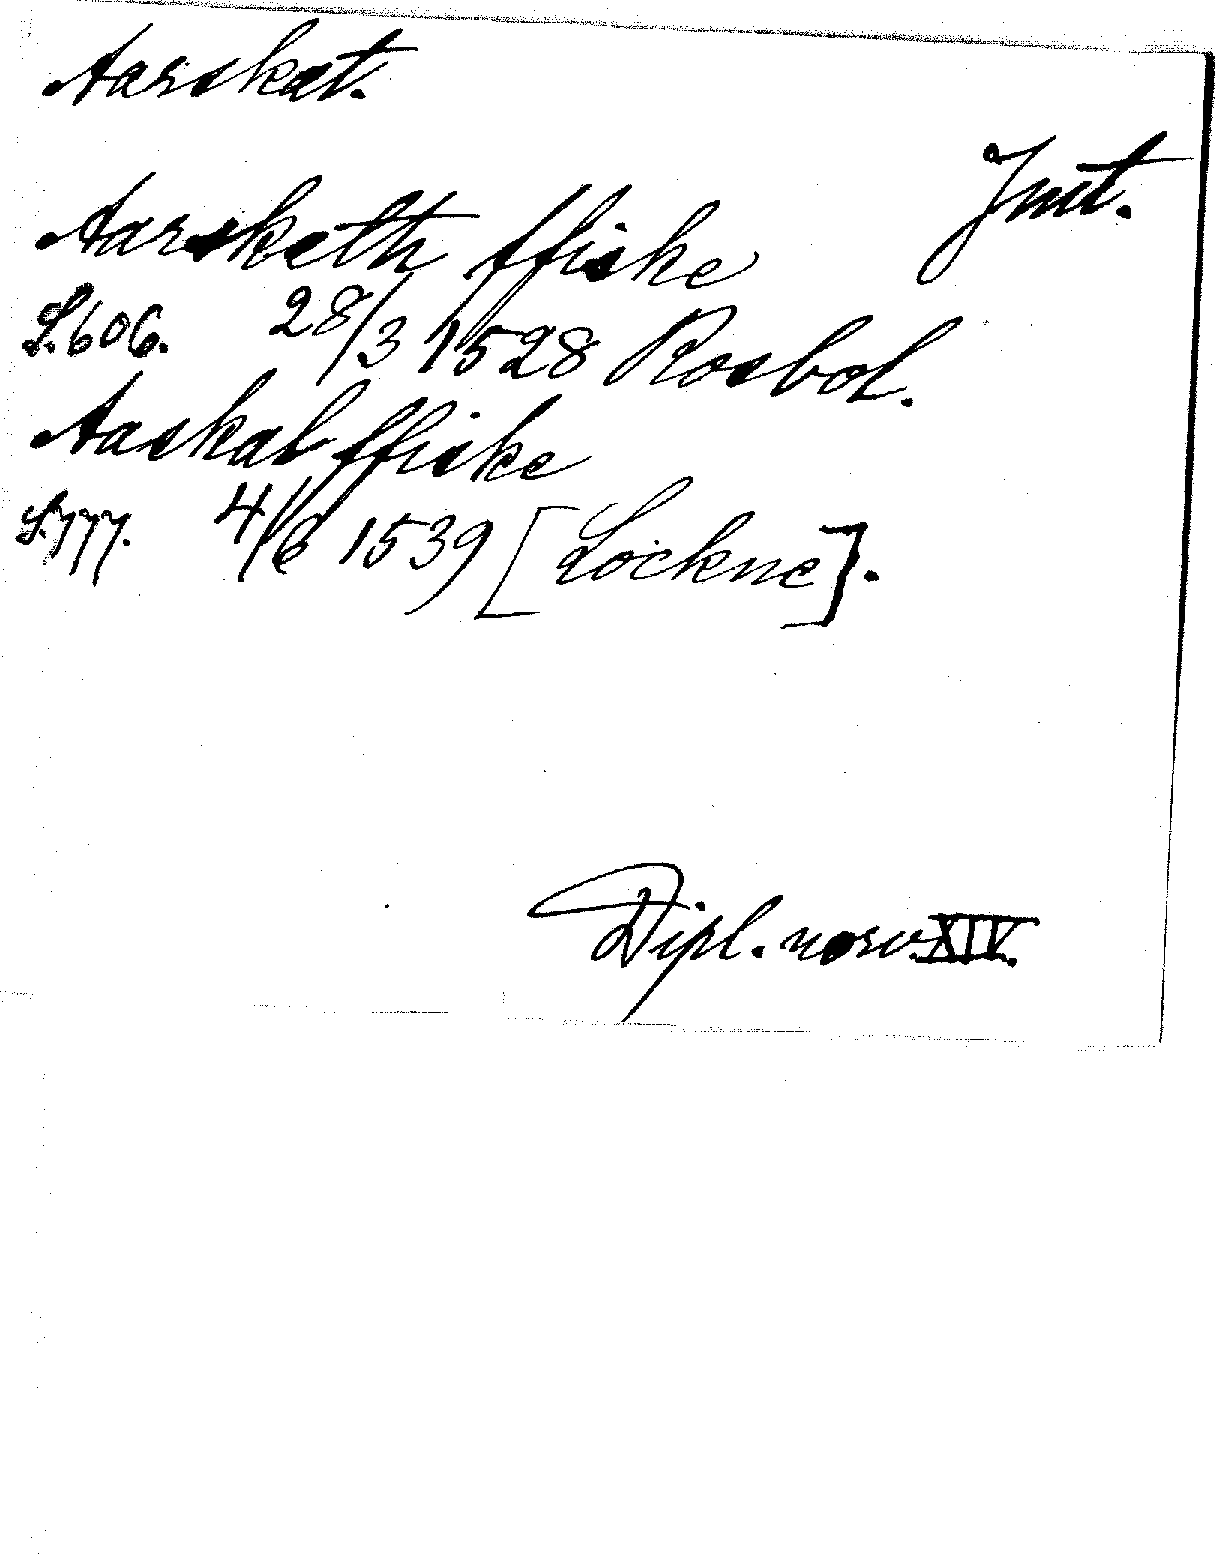 Aarskat.
Jmt.
Aarskath ffiske
S. 606. 28/3 1528 Rosbol.
Aaskal ffiske
S. 777. 4/6 1539 [Lockne].
Dipl. norv. XIV.